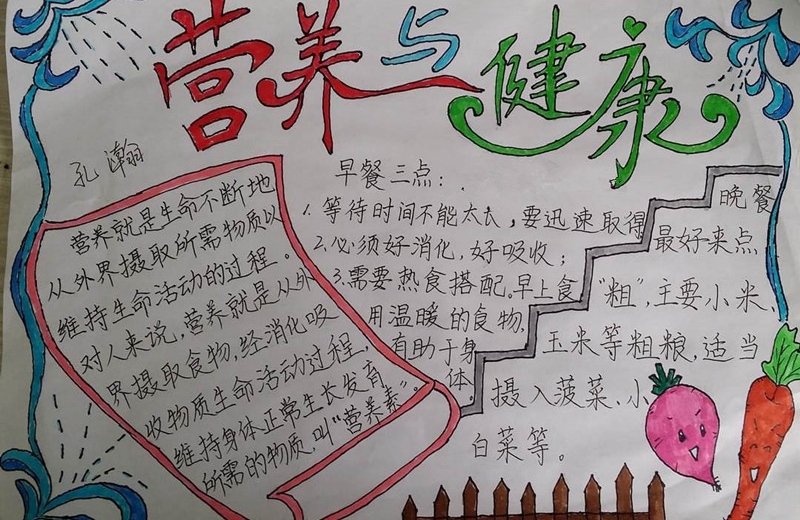 营养与健康
孔瀚
营养就是生命不断地
从外界摄取所需物质以
维持生命活动的过程。
对人来说,营养就是从外
界摄取食物,经消化吸
收物质生命活动过程,
维持身体正常生长发育
所需的物质,叫“营养素”。
早餐三点:
1.等待时间不能太长,要迅速取得
2.必须好消化,好吸收;
3.需要热食搭配。早上食
用温暖的食物,
有助于身
体
晚餐
最好来点
“粗”,主要小米,
玉米等粗粮,适当
摄入菠菜,小
白菜等。